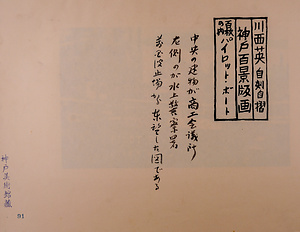 川西英 自刻自摺
神戸百景版画
百景の内 パイロット・ボート
中央の建物が商工会議所
左側のが水上警察署
前波止場から東望した図である
神戸美術館蔵
91